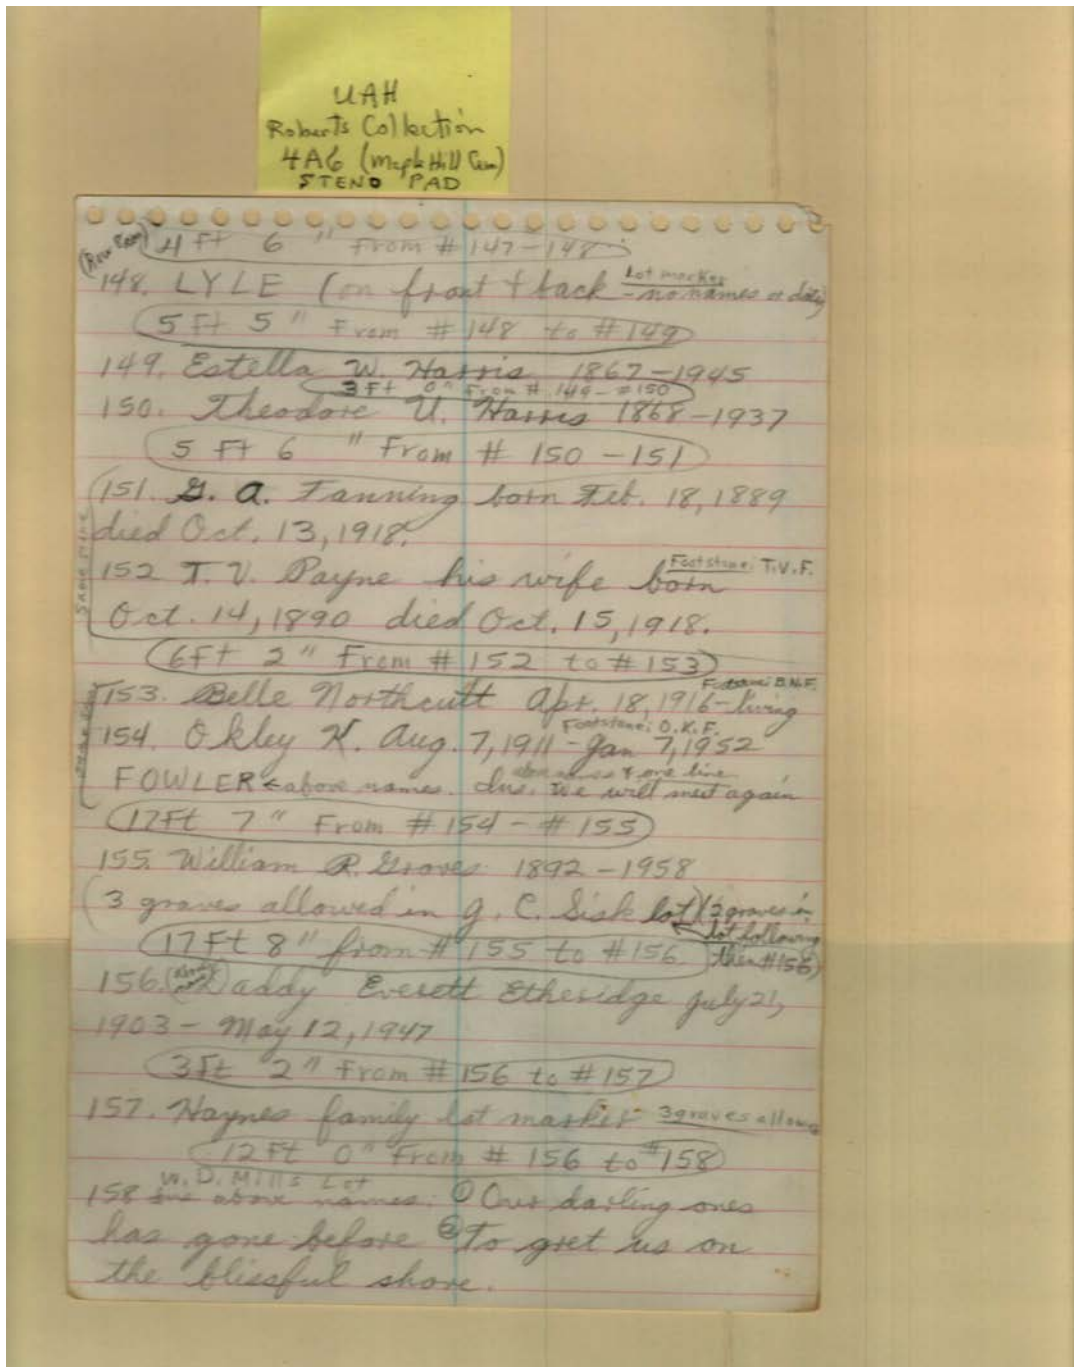 UAH
Roberts Collection
4A6 (Maple Hill Cem)
STENO PAD
4 Ft 6 " From # 147-148
148. LYLE (on front & back - no names or dates)
Lot marker
5 Ft 5 " From # 148 to # 149
149. Estella W. Harris 1867-1945
3 Ft 0" From # 149-#150
150. Theodore U. Harris 1868-1937
5 Ft 6 " From # 150 -151
151. G. A. Fanning born Feb. 18, 1889
died Oct. 13, 1918.
152 T. V. Payne his wife born
Footstone: T.V.F.
Oct. 14, 1890 died Oct. 15, 1918.
6 Ft 2" From # 152 to # 153
Footstone: B.N.F.
153. Belle Northcutt Apr. 18, 1916-living
Footstone: O.K.F.
154. Okley K. Aug. 7, 1911 - Jan 7, 1952
FOWLER ← above names. Ins. We will meet again
17 Ft 7 " From # 154 - # 155
155. William R. Graves 1892-1958
(3 graves allowed in G. C. Sisk lot) (3 graves in
lot following
17 Ft 8" from # 155 to # 156
then #156)
156. Daddy Everett Etheridge July 21,
1903 - May 12, 1947
3 Ft 2" From # 156 to # 157
157. Haynes family lot marker 3 graves allowed
12 Ft 0" From # 156 to #158
W. D. Mills Lot
158 Ins above names: ① Our darling ones
has gone before ② To gret us on
the blissful shore.